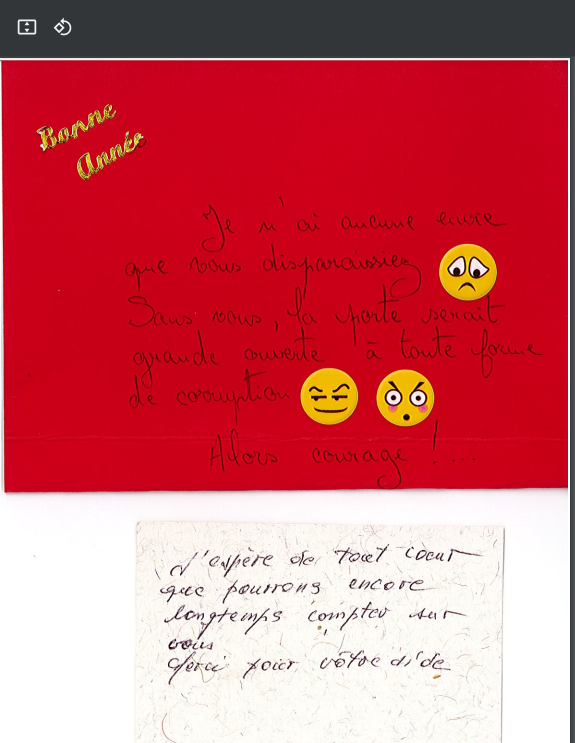 Bonne
Année
Je n'ai aucune envie
que vous disparaissiez
Sans vous, la porte serait
grande ouverte à toute forme
de corruption
Alors courage !....
J'espère de tout coeur
que pourrons encore
longtemps compter sur
vous
Merci pour vôtre aide